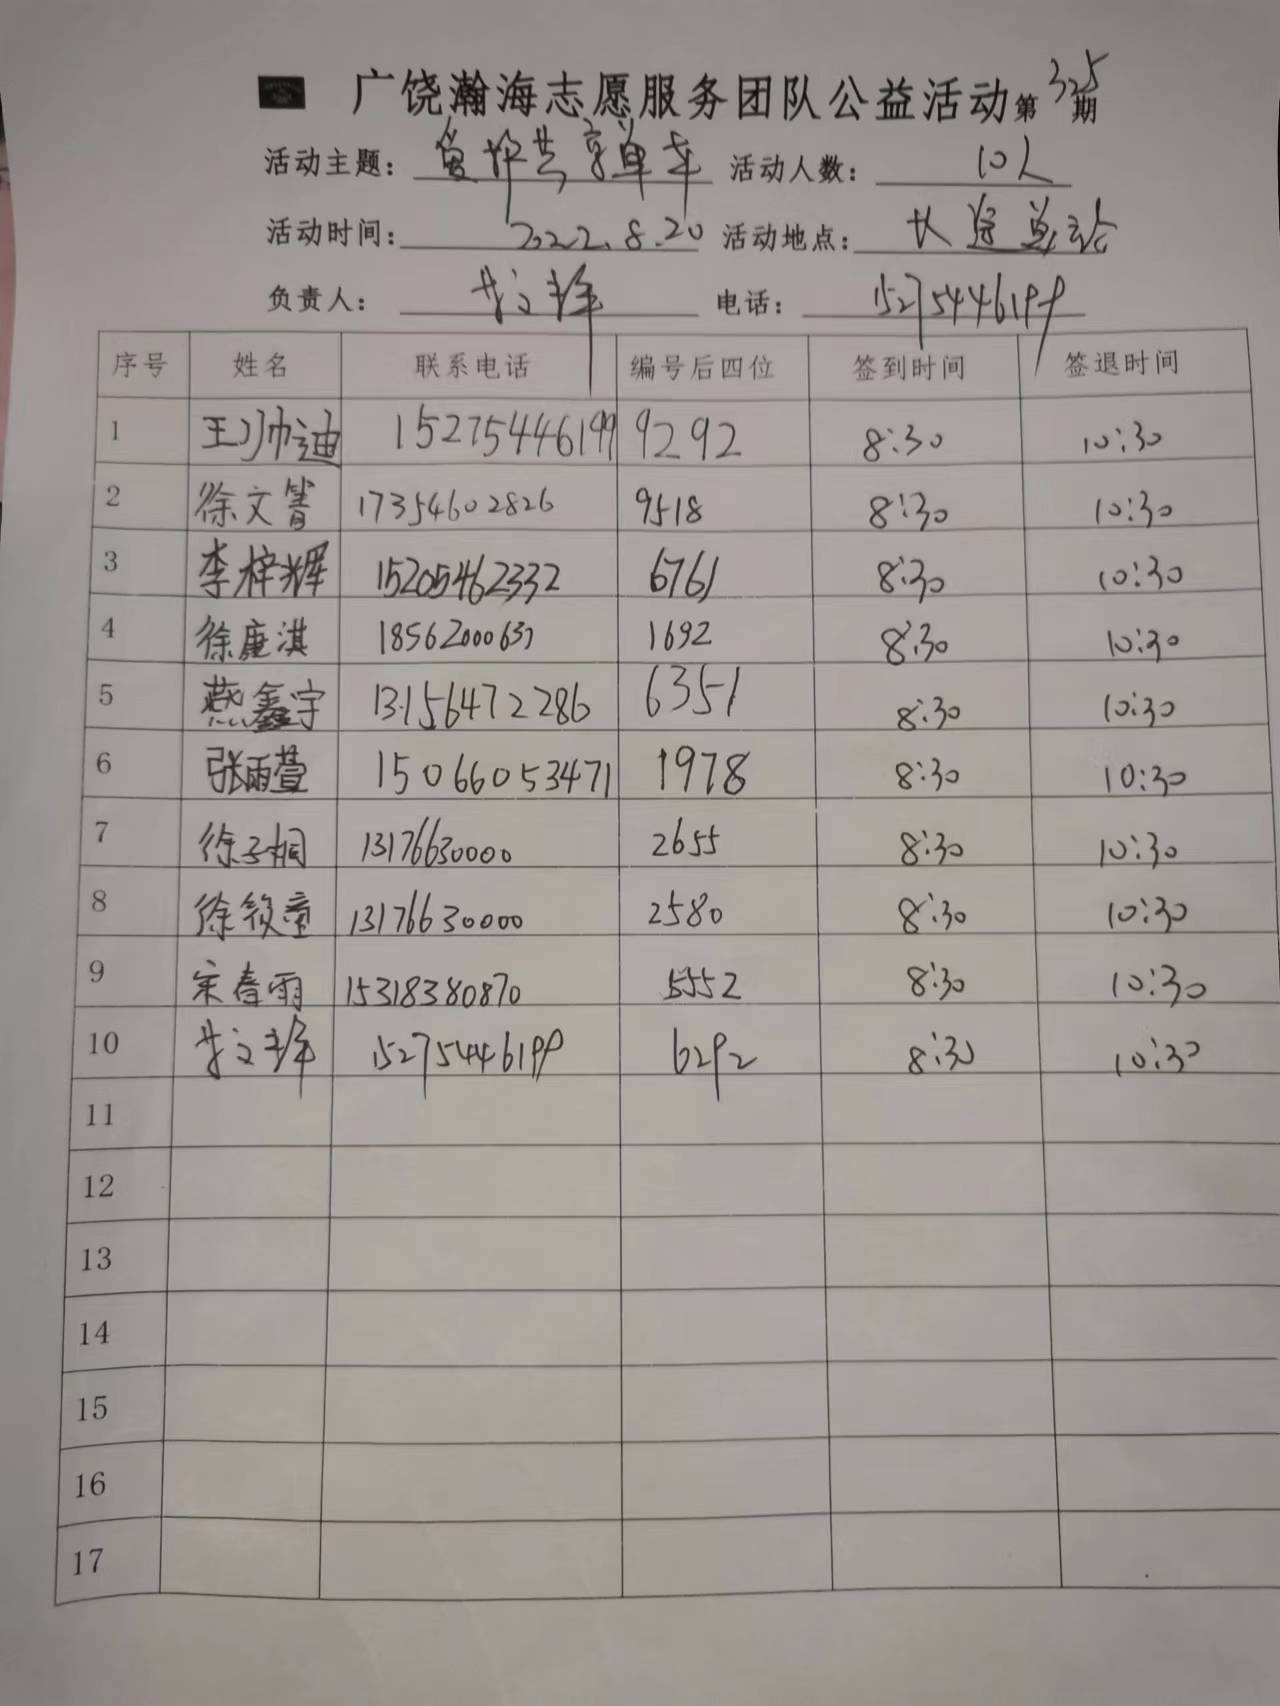 广饶瀚海志愿服务团队公益活动第325期
活动主题： 共享单车 活动人数： 10人
活动时间： 2022.8.20 活动地点： 长途总站
负责人： 电话： 15275446199
序号 姓名 联系电话 编号后四位 签到时间 签退时间
1 王帅迪 15275446199 9292 8:30 10:30
2 徐文箐 17354602826 9518 8:30 10:30
3 李梓辉 15205462332 6761 8:30 10:30
4 徐唐淇 18562000637 1692 8:30 10:30
5 燕鑫宇 13156472286 6351 8:30 10:30
6 张雨萱 15066053471 1978 8:30 10:30
7 徐子桐 13176630000 2655 8:30 10:30
8 徐筱童 13176630000 2580 8:30 10:30
9 宋春雨 15318380870 5552 8:30 10:30
10 15275446199 6292 8:30 10:30
11
12
13
14
15
16
17